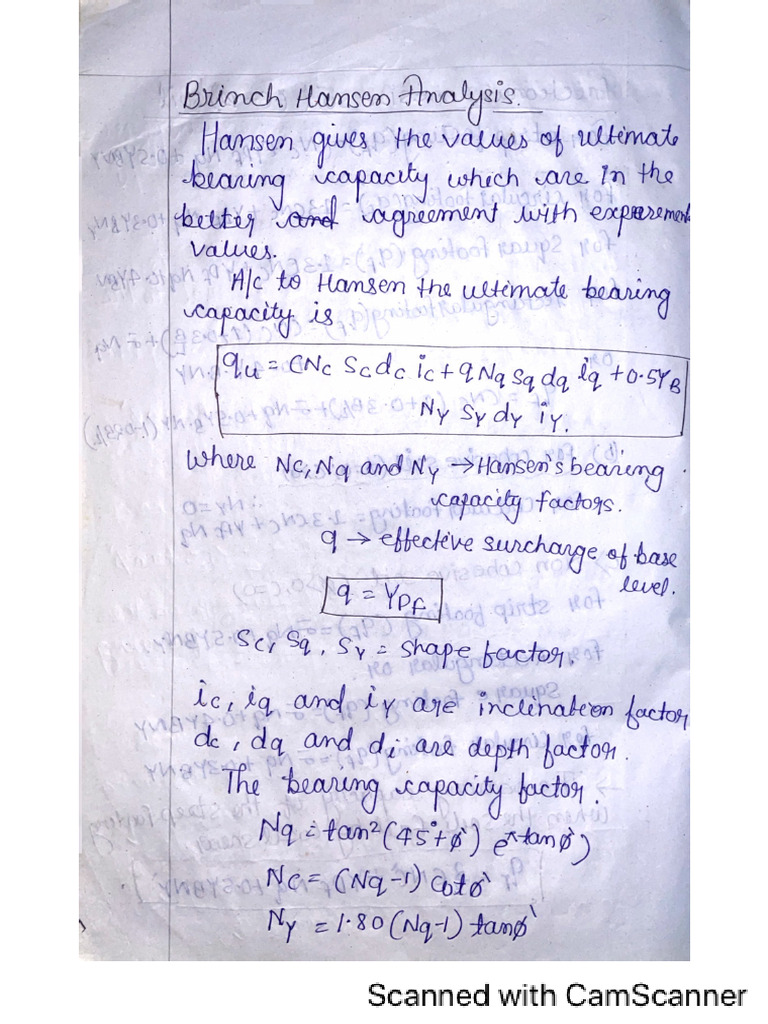 Brinch Hansen Analysis.
Hansen gives the values of ultimate
bearing capacity which are in the
better and agreement with experement
values.
A/c to Hansen the ultimate bearing
capacity is
qu = CNc Sc dc ic + q Nq Sq dq iq + 0.5γB
Nγ Sγ dγ iγ.
where Nc, Nq and Nγ → Hansen's bearing
capacity factors.
q → effective surcharge of base
level.
q = γDf
Sc, Sq, Sγ = shape factor.
ic, iq and iγ are inclination factor
dc, dq and di are depth factor.
The bearing capacity factor.
Nq = tan²(45°+φ') e^πtanφ')
Nc = (Nq-1) cotφ'
Nγ = 1.80 (Nq-1) tanφ'
Scanned with CamScanner